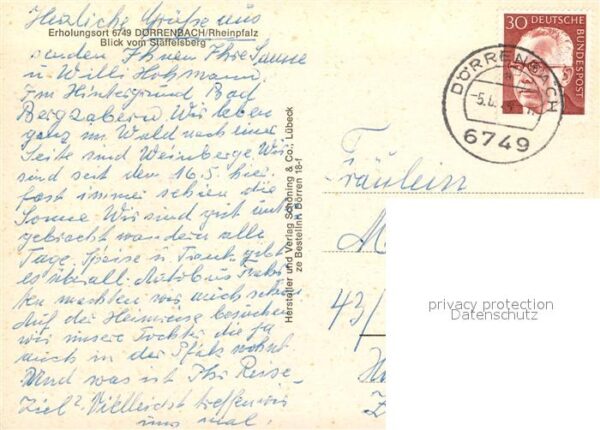 Herzliche Grüße aus
Erholungsort 6749 DÖRRENBACH/Rheinpfalz
Blick vom Stäffelsberg
senden Ihnen Ihre Sanne
u Willi Hohmann.
Im Hintergrund Bad
Bergzabern. Wir leben
ganz im Wald nach einer
Seite sind Weinberge. Wir
sind seit dem 16.5. hier
fast immer schien die
Sonne. Wir sind gut unter
gebracht wandern alle
Tage. Speise u Trank gibt
es überall. Autobus
machten wir auch schon
Auf der Heimreise besuchen
wir unsere Tochter die ja
auch in der Pfalz wohnt
Und was ist Ihr Reise-
Ziel? Vielleicht treffen wir
uns mal.
Hersteller und Verlag Schöning & Co., Lübeck
ze Bestellnr. Dörren 18-f
30 DEUTSCHE
BUNDESPOST
DÖRRENBACH
6749
Fräulein
M
43/
privacy protection
Datenschutz